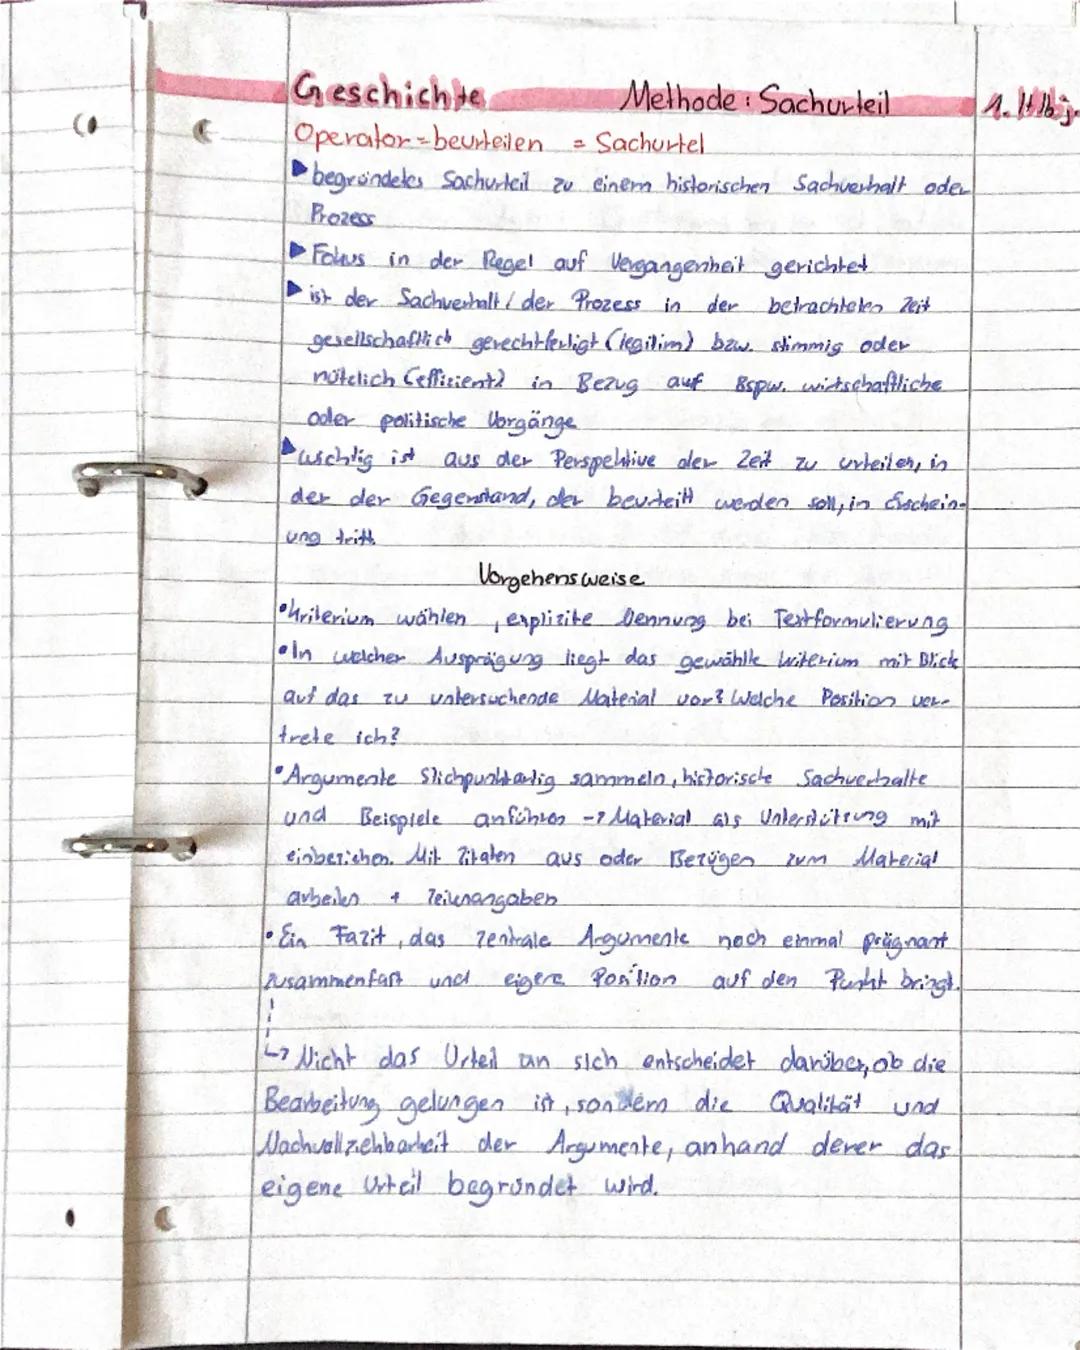 Geschichte Methode: Sachurteil 1. Hlbj.
Operator = beurteilen = Sachurtel
▶ begründetes Sachurteil zu einem historischen Sachverhalt oder
Prozess
▶ Fokus in der Regel auf Vergangenheit gerichtet
▶ ist der Sachverhalt / der Prozess in der betrachteten Zeit
gesellschaftlich gerechtfertigt (legitim) bzw. stimmig oder
nützlich (effizient) in Bezug auf Bspw. wirtschaftliche
oder politische Vorgänge
▶ wichtig ist aus der Perspektive der Zeit zu urteilen, in
der der Gegenstand, der beurteilt werden soll, in Erschein-
ung tritt.
Vorgehensweise
• Kriterium wählen, explizite Nennung bei Textformulierung
• In welcher Ausprägung liegt das gewählte Kriterium mit Blick
auf das zu untersuchende Material vor? Welche Position ver-
trete ich?
• Argumente Stichpunktartig sammeln, historische Sachverhalte
und Beispiele anführen -> Material als Unterstützung mit
einbeziehen. Mit Zitaten aus oder Bezügen zum Material
arbeiten + Zeilenangaben
• Ein Fazit, das zentrale Argumente noch einmal prägnant
zusammenfast und eigene Position auf den Punkt bringt.
↳ Nicht das Urteil an sich entscheidet darüber, ob die
Bearbeitung gelungen ist, sondern die Qualität und
Nachvollziehbarkeit der Argumente, anhand derer das
eigene Urteil begründet wird.